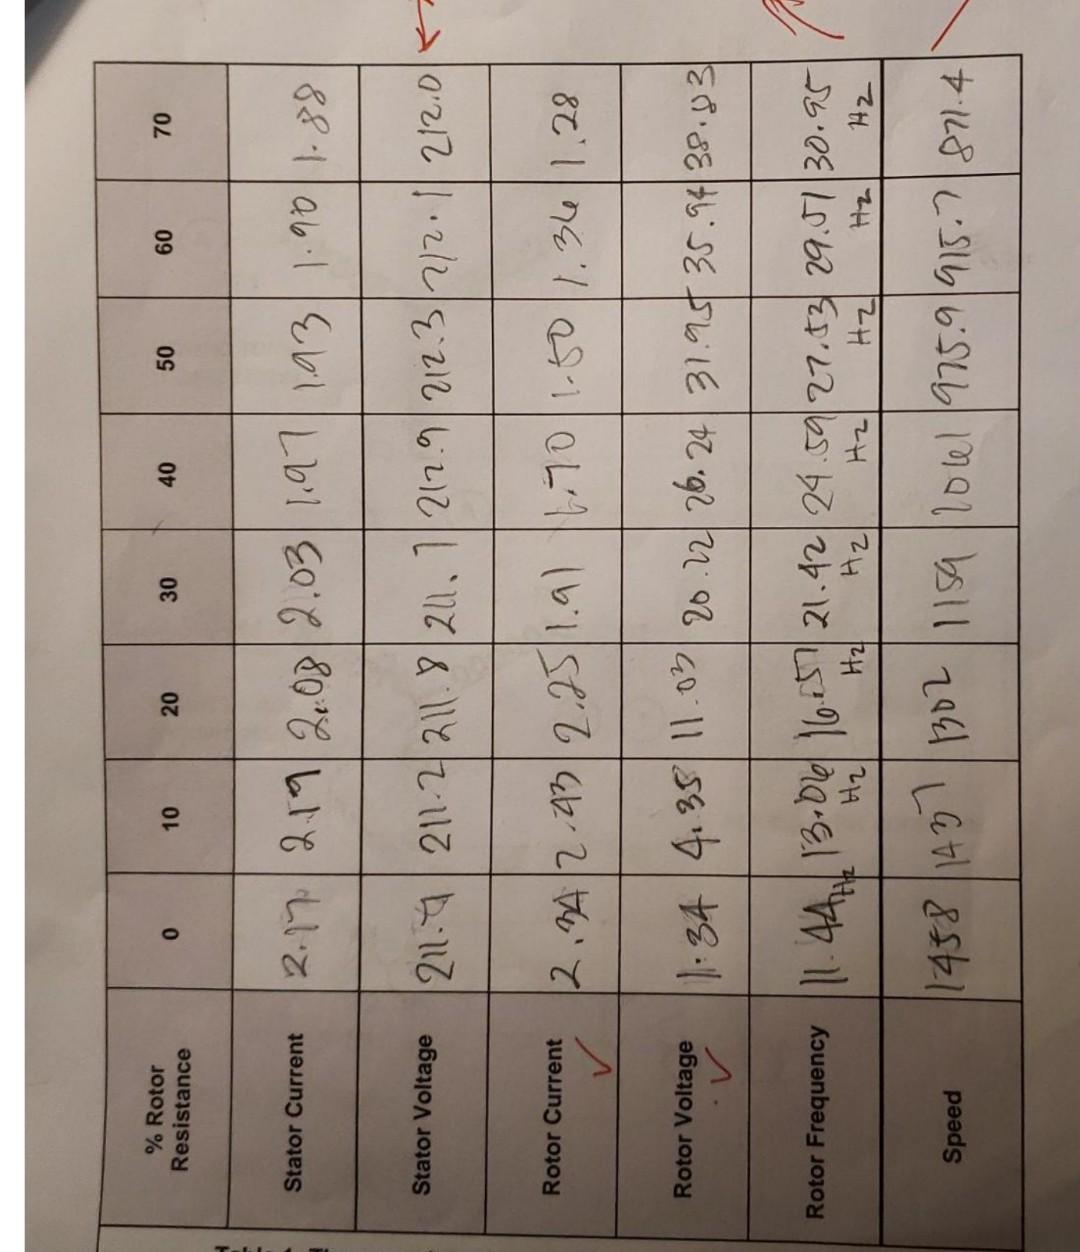 % Rotor Resistance 0 10 20 30 40 50 60 70
Stator Current 2.17 2.19 2.08 2.03 1.97 1.93 1.90 1.88
Stator Voltage 211.2 211.8 211.7 212.3 212.1 212.0
Rotor Current 2.34 2.43 2.25 1.91 1.70 1.50 1.36 1.28
Rotor Voltage 11.34 4.35 11.03 20.22 26.24 31.95 35.94 38.03
Rotor Frequency 11.44 Hz 13.06 Hz 16.57 Hz 21.42 Hz 24.59 Hz 27.53 Hz 29.51 Hz 30.95 Hz
Speed 1458 1437 1302 1159 1061 975.9 915.7 871.4